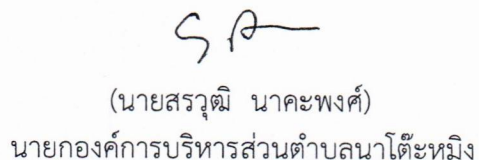 (นายสรวุฒิ นาคะพงศ์)
นายกองค์การบริหารส่วนตำบลนาโต๊ะหมิง